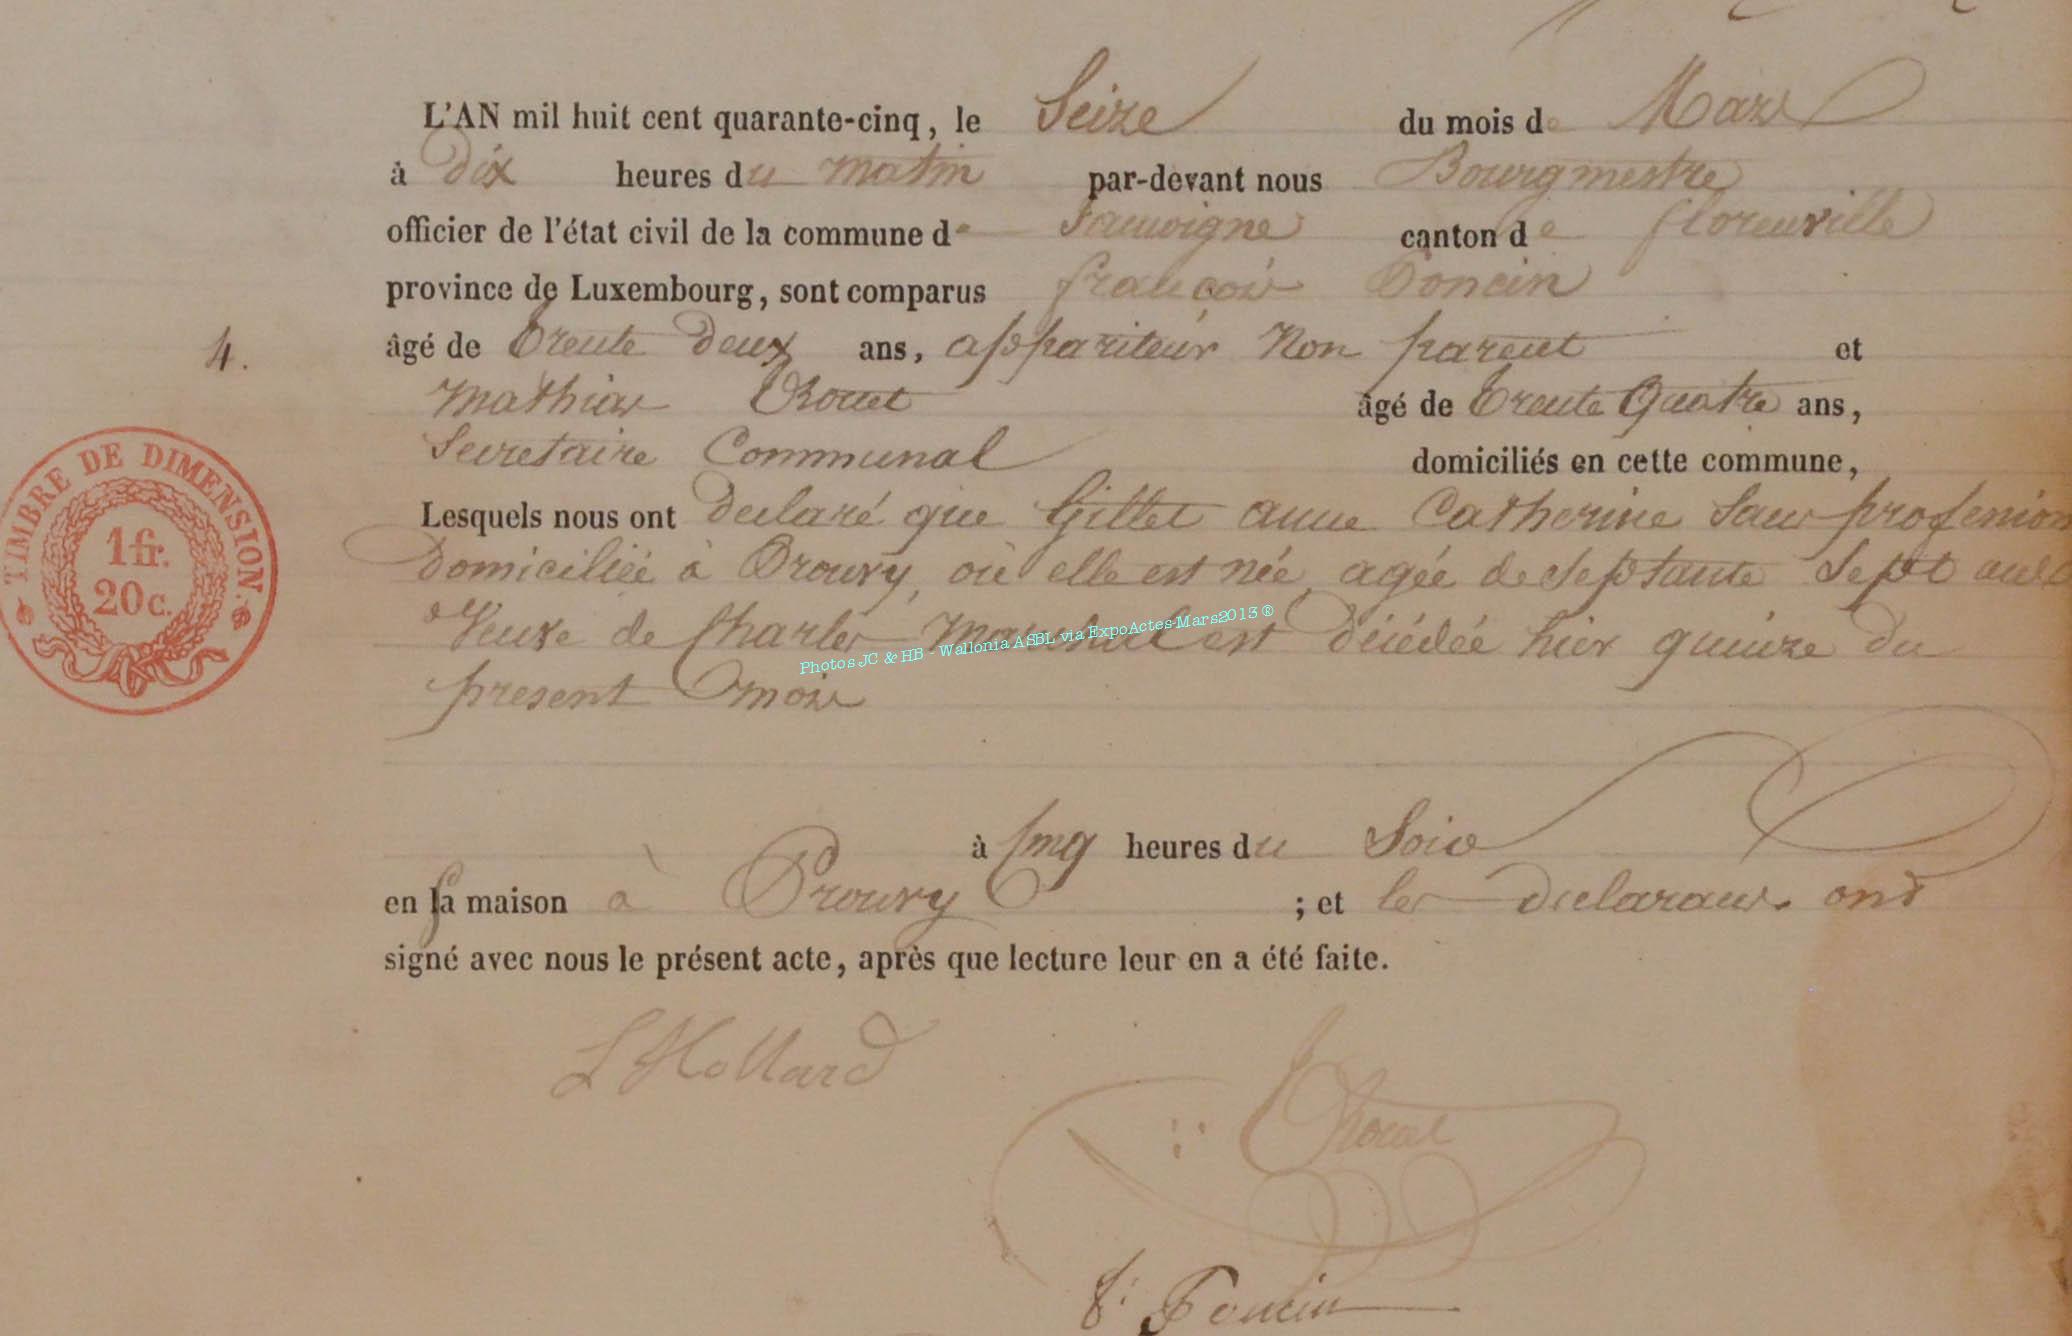 L'AN mil huit cent quarante-cinq, le Seize du mois de Mars
à dix heures du matin par-devant nous Bourgmestre
officier de l'état civil de la commune de canton de florenville
province de Luxembourg, sont comparus françois Poncin
âgé de trente deux ans, appariteur Non parent et
4.
Mathias âgé de trente Quatre ans,
Secretaire Communal domiciliés en cette commune,
Lesquels nous ont declaré que Gillet anne Catherine Sans profession
Domiciliée à Prouvy, où elle est née, agée de septante Sept ans
Veuve de Charles est décédée hier quinze du
present mois
à cinq heures du Soir
en sa maison à Prouvy ; et les declarans ont
signé avec nous le présent acte, après que lecture leur en a été faite.
L Hollard
f. Poncin
TIMBRE DE DIMENSION.
1 fr.
20 c.
Photos JC & HB - Wallonia ASBL via ExpoActes-Mars2013 ®